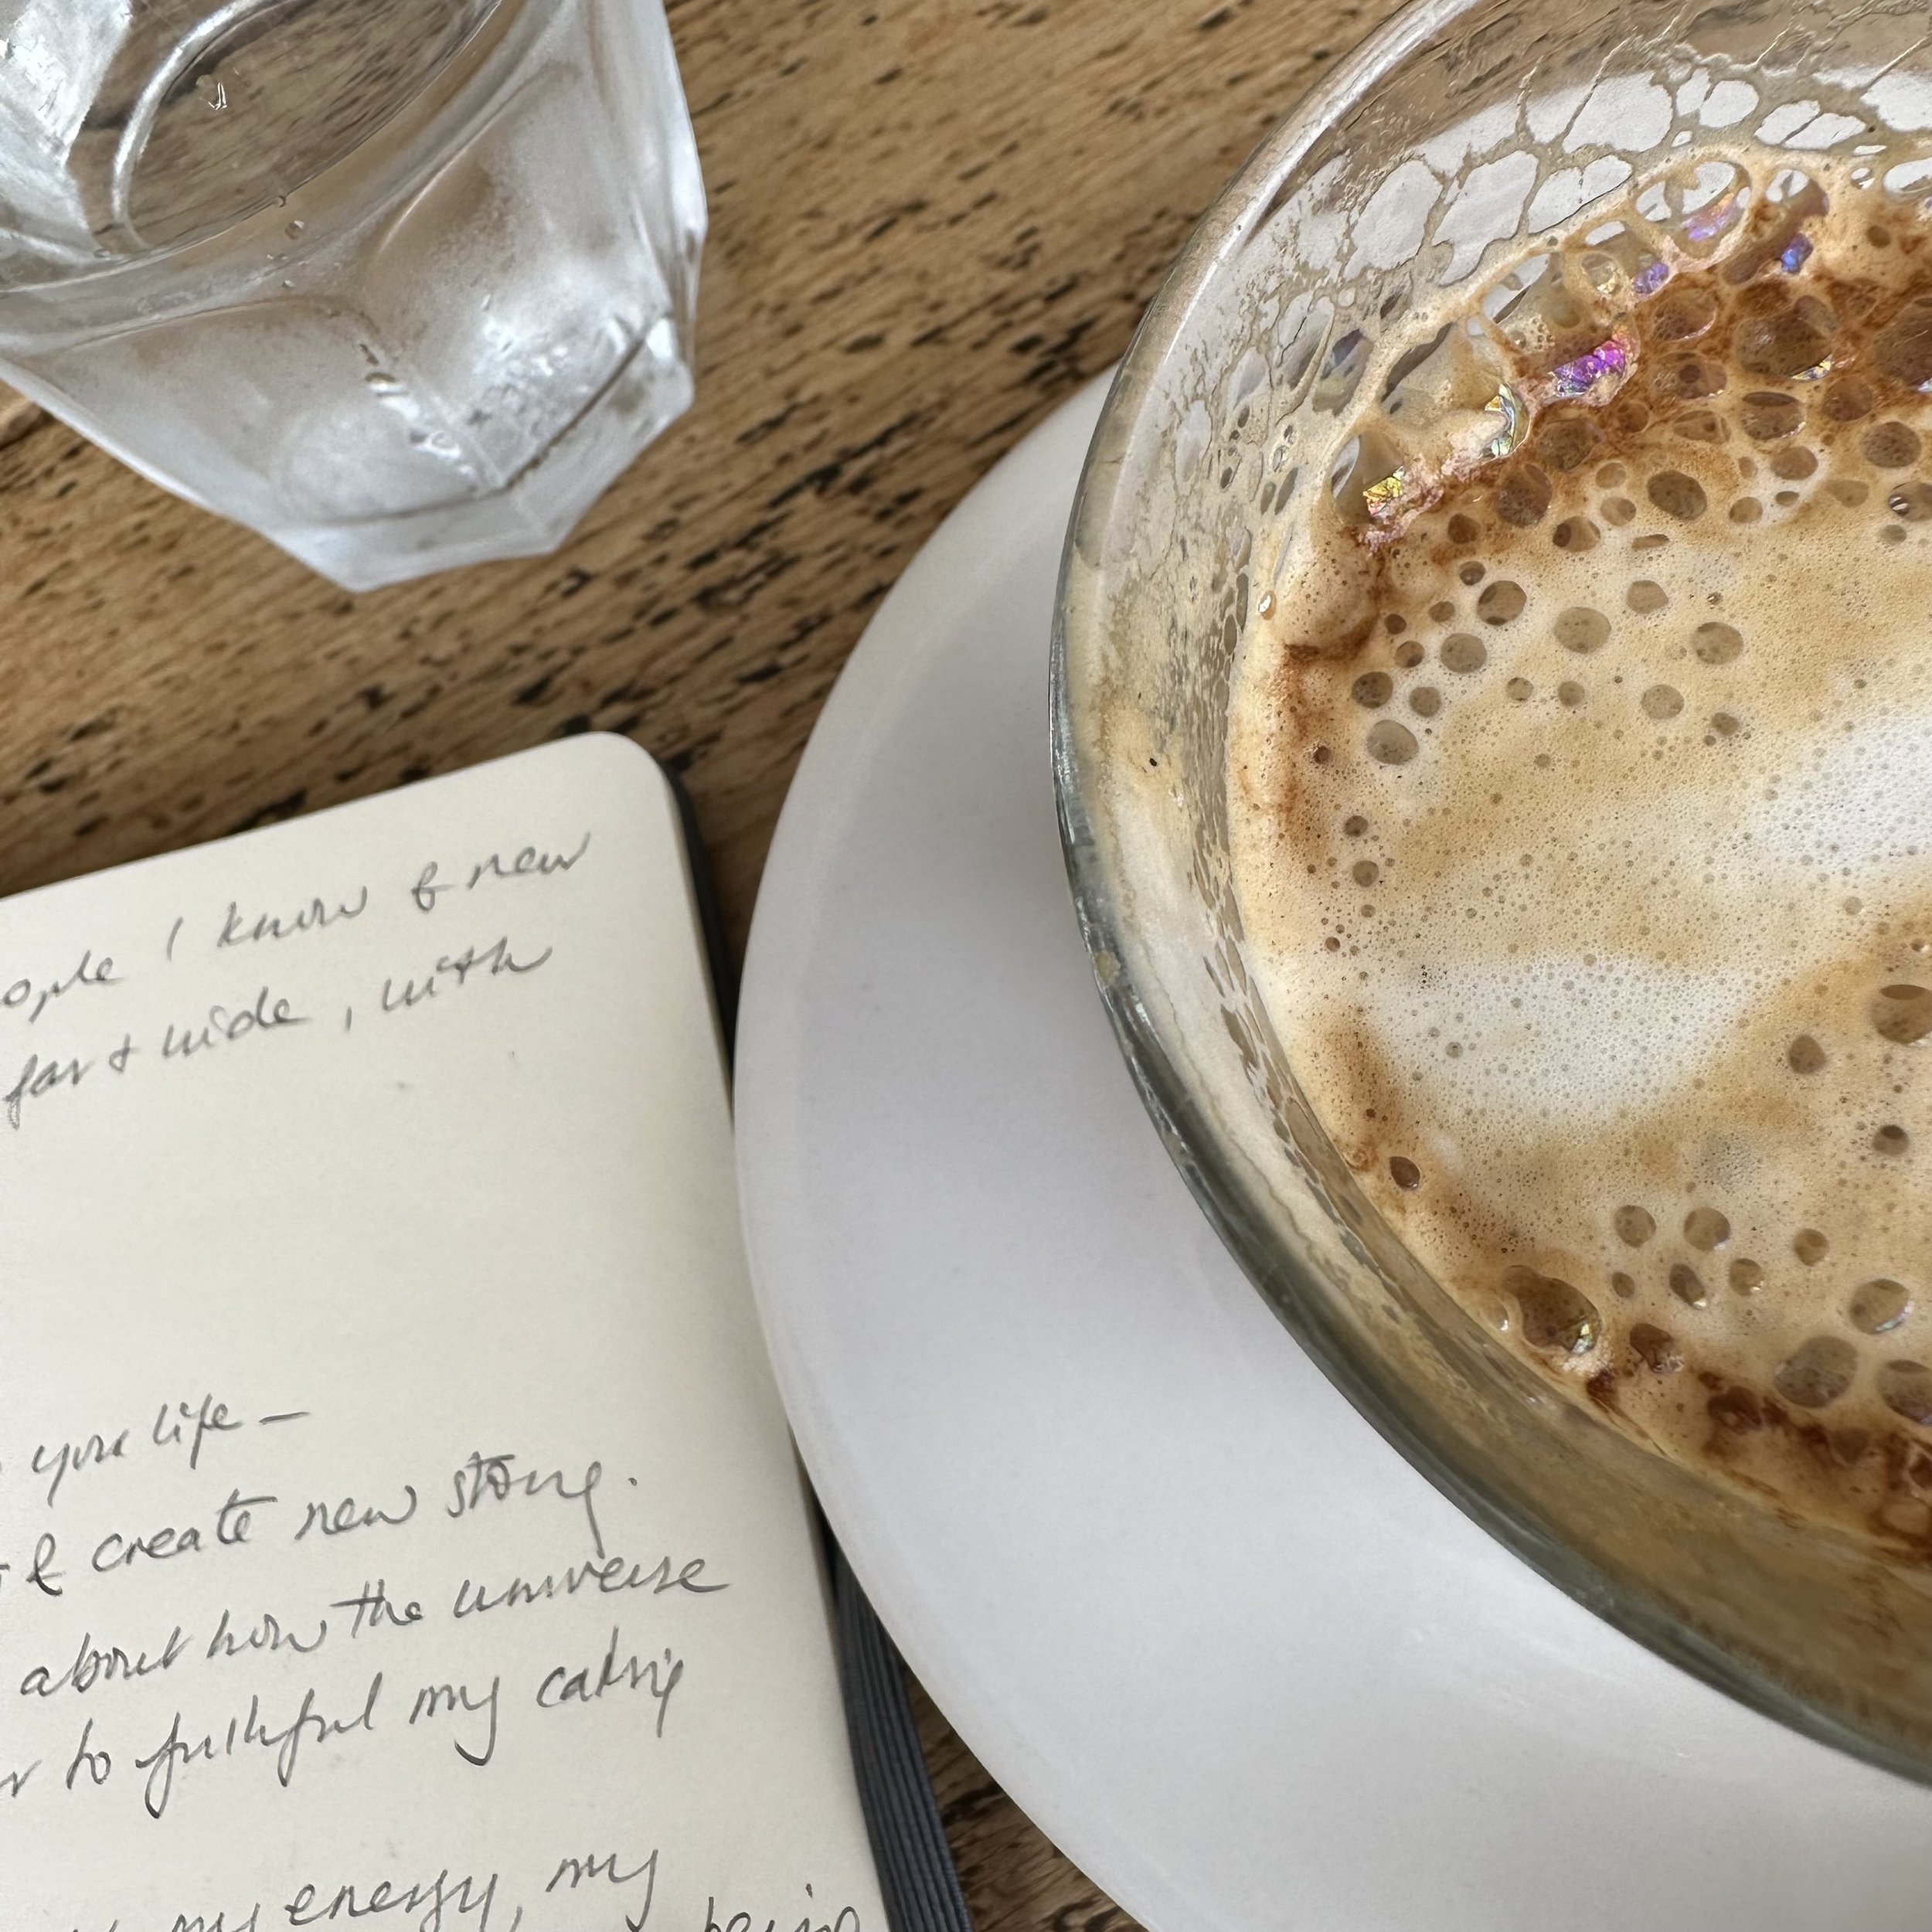 ople I know & new
far & wide, with
your life -
& create new story.
about how the universe
to my
my energy, my
being